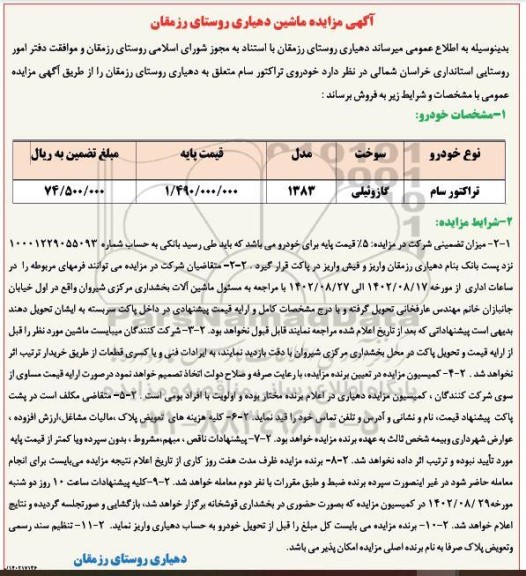 آگهی مزایده ماشین دهیاری روستای رزمقان
بدینوسیله به اطلاع عمومی میرساند دهیاری روستای رزمقان با استناد به مجوز شورای اسلامی روستای رزمقان و موافقت دفتر امور
روستایی استانداری خراسان شمالی در نظر دارد خودروی تراکتور سام متعلق به دهیاری روستای رزمقان را از طریق آگهی مزایده
عمومی با مشخصات و شرایط زیر به فروش برساند :
۱-مشخصات خودرو:
نوع خودرو سوخت مدل قیمت پایه مبلغ تضمین به ریال
تراکتور سام گازوئیلی ۱۳۸۳ ۱/۴۹۰/۰۰۰/۰۰۰ ۷۴/۵۰۰/۰۰۰
۲-شرایط مزایده:
۲-۱- میزان تضمینی شرکت در مزایده: ۵٪ قیمت پایه برای خودرو می باشد که باید طی رسید بانکی به حساب شماره ۱۰۰۰۱۲۲۹۰۵۵۰۹۳
نزد پست بانک بنام دهیاری رزمقان واریز و فیش واریز در پاکت قرار گیرد . ۲-۲- متقاضیان شرکت در مزایده می توانند فرمهای مربوطه را در
ساعات اداری از مورخه ۱۴۰۲/۰۸/۱۷ الی ۱۴۰۲/۰۸/۲۷ با مراجعه به مسئول ماشین آلات بخشداری مرکزی شیروان واقع در اول خیابان
جانبازان خانم مهندس عارفخانی تحویل گرفته و با درج مشخصات کامل و ارایه قیمت پیشنهادی در داخل پاکت سربسته به ایشان تحویل دهند
بدیهی است پیشنهاداتی که بعد از تاریخ اعلام شده مراجعه نمایند قابل قبول نخواهد بود. ۲-۳- شرکت کنندگان میبایست ماشین مورد نظر را قبل
از ارایه قیمت و تحویل پاکت در محل بخشداری مرکزی شیروان با دقت بازدید نمایند، به ایرادات فنی و یا کسری قطعات از طریق خریدار ترتیب اثر
نخواهد شد . ۲-۴- کمیسیون مزایده در تعیین برنده مزایده، با رعایت صرفه و صلاح دولت اتخاذ تصمیم خواهد نمود در صورت ارایه قیمت مساوی از
سوی شرکت کنندگان ، کمیسیون مزایده دهیاری در اعلام برنده مختار بوده و اولویت با افراد بومی است . ۲-۵- متقاضی مکلف است در پشت
پاکت پیشنهاد قیمت، نام و نشانی و آدرس و تلفن تماس خود را قید نماید. ۲-۶- کلیه هزینه های تعویض پلاک ،مالیات مشاغل،ارزش افزوده ،
عوارض شهرداری وبیمه شخص ثالث به عهده برنده مزایده خواهد بود. ۲-۷- پیشنهادات ناقص ، مبهم،مشروط ، بدون سپرده ویا کمتر از قیمت پایه
مورد تأیید نبوده و ترتیب اثر داده نخواهد شد. ۲-۸- برنده مزایده ظرف مدت هفت روز کاری از تاریخ اعلام نتیجه مزایده می‌بایست برای انجام
معامله حاضر شود در غیر اینصورت سپرده برنده ضبط و طبق مقررات با نفر دوم معامله خواهد شد. ۲-۹-کلیه پیشنهادات ساعت ۱۰ روز دو شنبه
مورخه ۱۴۰۲/۰۸/۲۹ در کمیسیون مزایده که بصورت حضوری در بخشداری قوشخانه برگزار خواهد شد، بازگشایی و صورتجلسه گردیده و نتایج
اعلام خواهد شد. ۲-۱۰- برنده مزایده می بایست کل مبلغ را قبل از تحویل خودرو به حساب دهیاری واریز نماید. ۲-۱۱- تنظیم سند رسمی
وتعویض پلاک صرفا به نام برنده اصلی مزایده امکان پذیر می باشد.
دهیاری روستای رزمقان